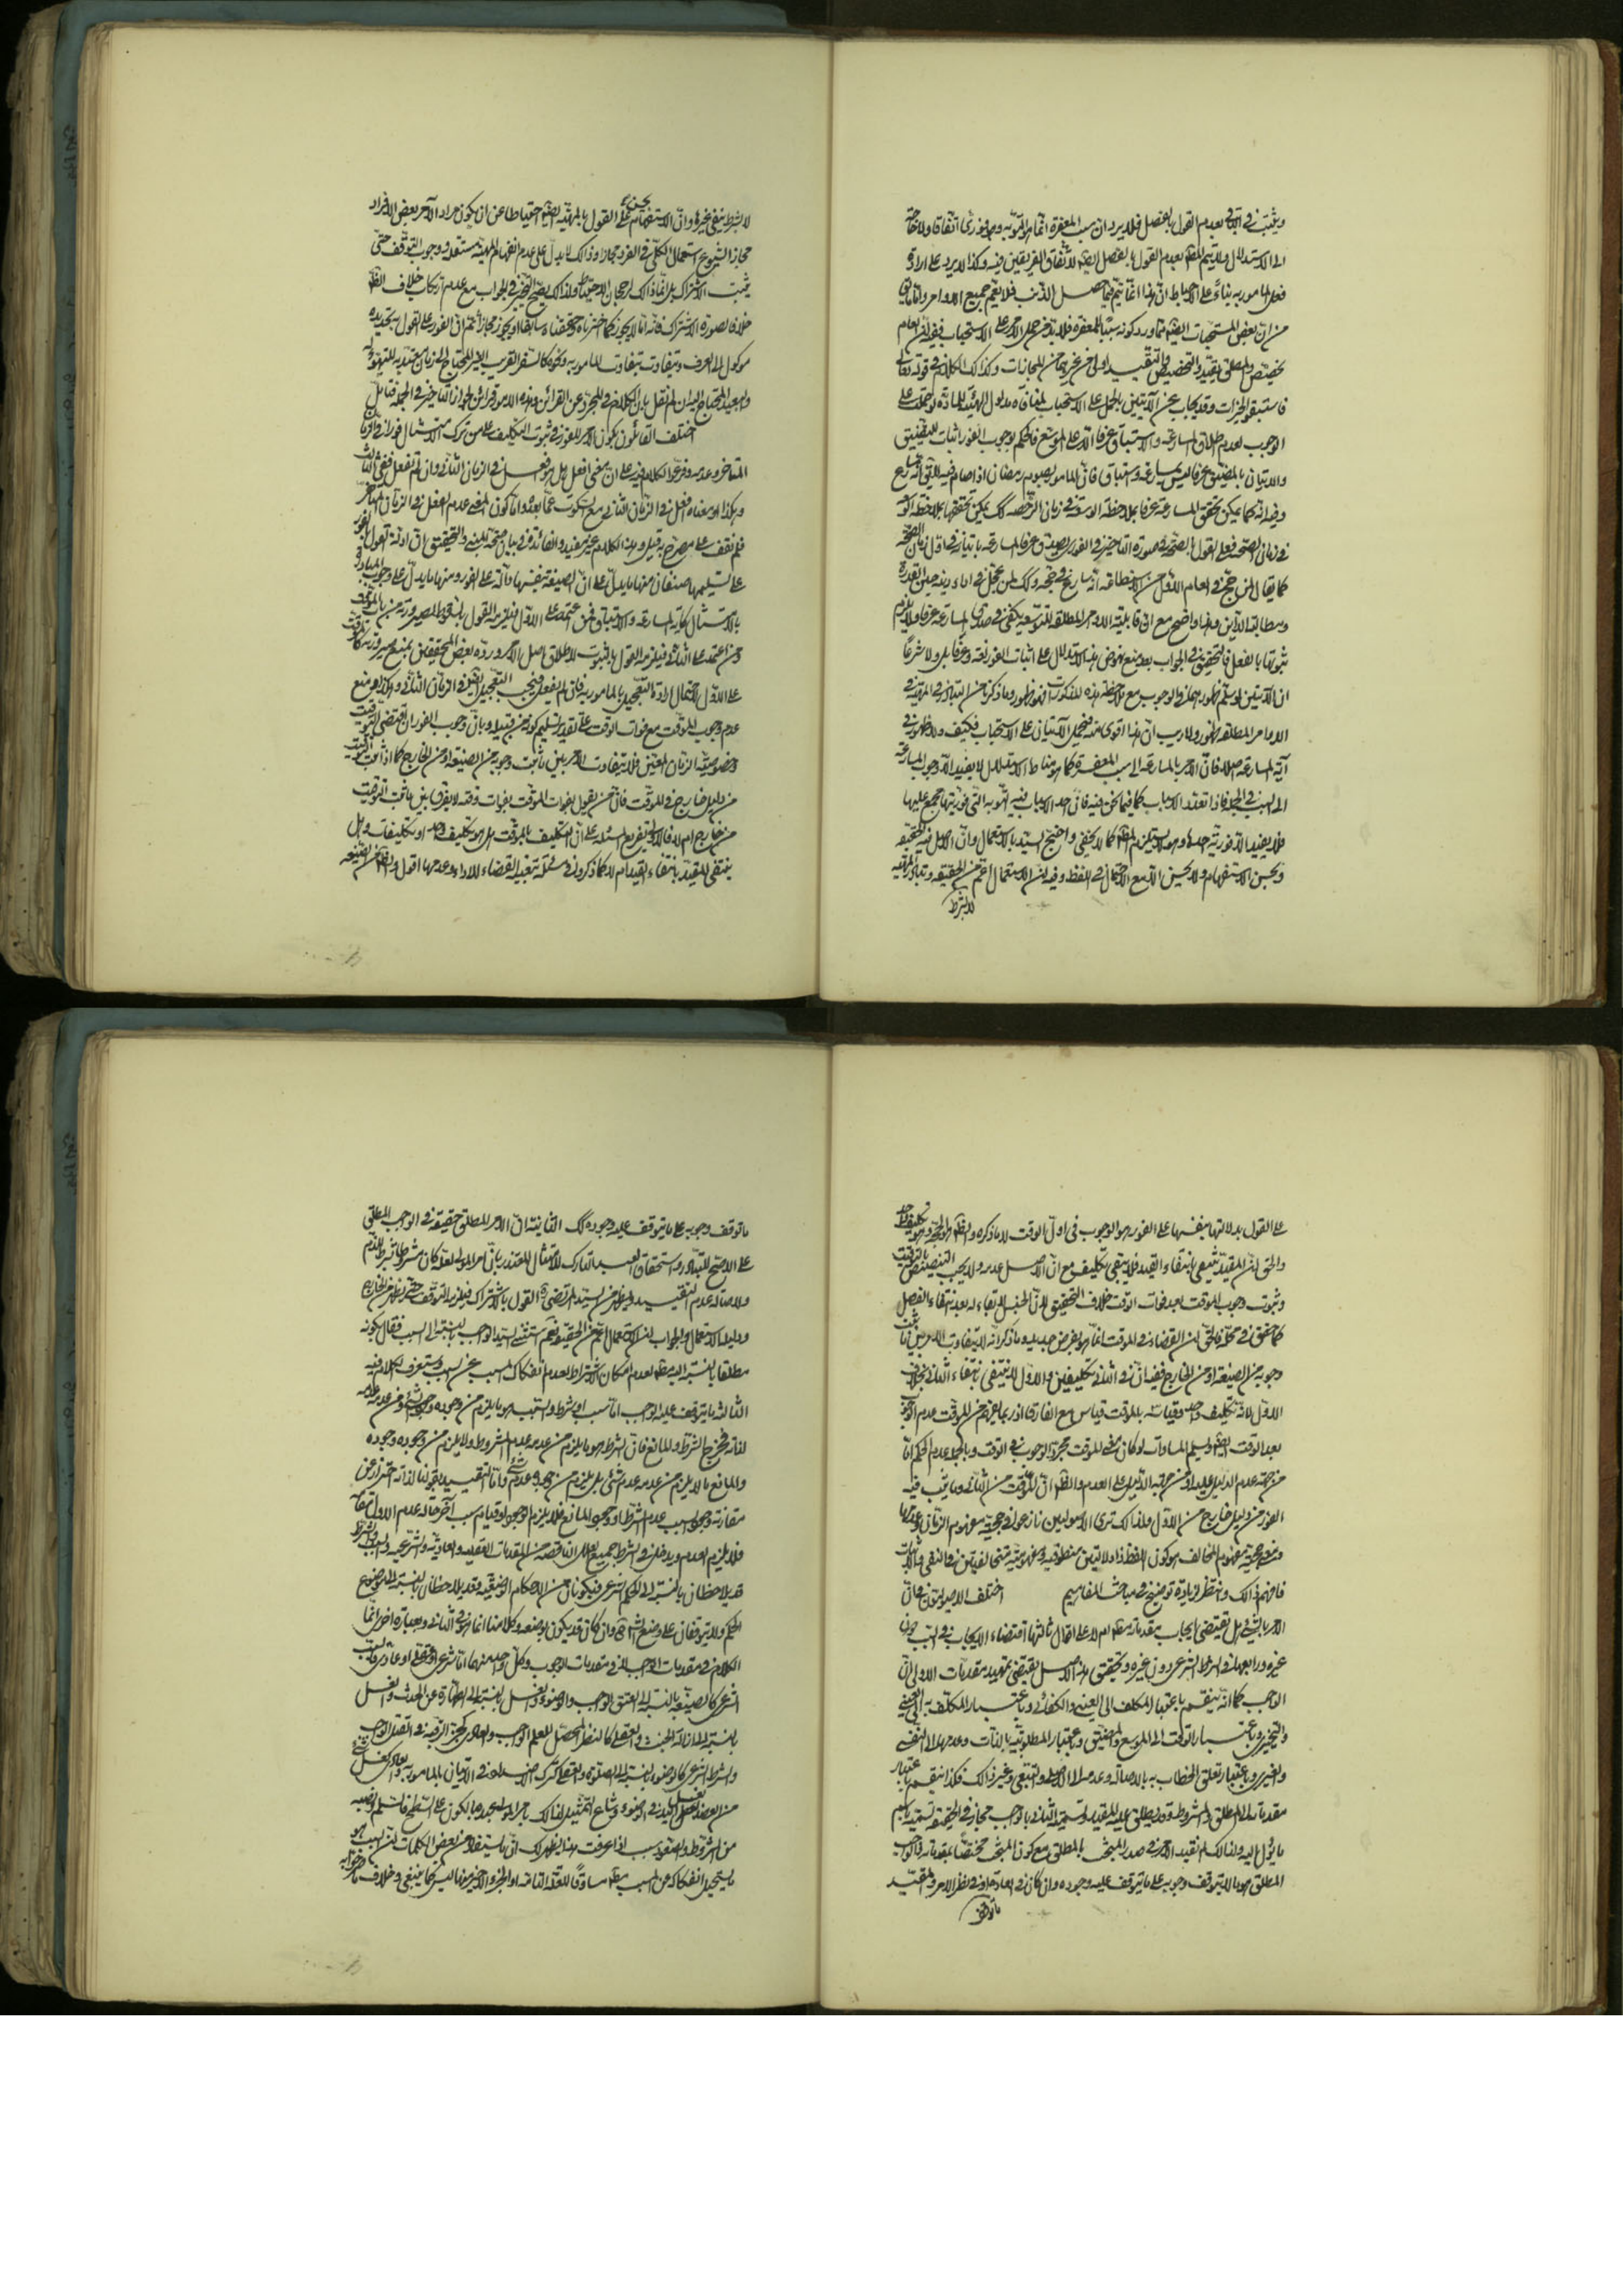 ويثبت في الباقي بعدم القول بالفصل فلا يرد ان سبب المغفرة انما هو التوبة وهو فوري اتفاقا ولا حاجة
الى الاستدلال ولا يتم المط بعدم القول بالفصل ايضا لاتفاق الفريقين فيه وكذا لا يرد على ارادة
فعل المامور به بناء على الاحباط ان هذا انما يتم فيما حصل الذنب فلا يعم جميع الاوامر واما
من ان بعض المستحبات ايضا مما ورد كونه سببا للمغفرة فلا بد من حمل الامر على الاستحباب ففيه ان العام
يخصص والمطلق يقيد والتخصيص والتقييد اولى من غيرهما من المجازات وكذلك الكلام في قوله تعالى
فاستبقوا الخيرات وقد يجاب عن الآيتين بالحمل على الاستحباب لمنافاة مدلول الهيئة للمادة لو حملت على
الوجوب لعدم اطلاق المسارعة والاستباق عرفا الا على الموسع فالحكم بوجوب الفور اثبات للتضييق
والاتيان بالمضيق بحرفا ليس مسارعة واستباق فان المامور بصوم رمضان اذا صام فيه لا يق انه سارع
وفيه انه كما يمكن تحقق المسارعة عرفا بملاحظة الوسعة في زمان الرخصة كك يمكن تحققها بملاحظة
في زمان الصحة فعلى القول بالصحة في صورة التاخير في الفور يصدق عرفا المسارعة باتيانه في اول زمان الصحة
كما يقال لمن حج في العام الاول من الاستطاعة انه سارع في حجه وكك لمن عجل في اداء دينه حين القدرة
ومطالبة الدائن وهذا واضح مع ان قابلية الاوامر المطلقة للتوسعة يكفي في صدق المسارعة عرفا ولا يلزم
ثبوتها بالفعل فالتحقيق في الجواب بعد منع نهوض هذا الاستدلال على اثبات الفور لغة وعرفا بل ولا شرعا
ان الآيتين لو سلم ظهورهما في الوجوب مع ملاحظة هذه المذكورات فهو ظهور وما ذكرنا من التبادر في المهية في
الاوامر المطلقة ظهور ولا ريب ان هذا اقوى منه فيحمل الآيتان على الاستحباب فكيف ولا ظهور في
آية المسارعة اصلا فان الامر بالمسارعة الى سبب المغفرة كما هو مناط الاستدلال لا يفيد الا وجوب المسارعة
الى السبب في الجملة فاذا تعدد الاسباب كما فيما نحن فيه فان احد الاسباب فيه التوبة التي فوريتها مجمع عليها
فلا يفيد الا فورية احدها وهو لا يستلزم المط كما لا يخفى واحتج السيد بالاستعمال وان الاصل فيه الحقيقة
وبحسن الاستفهام ولا يحسن الا مع الاحتمال في اللفظ وفيه ان الاستعمال اعم من الحقيقة وتبادر المهية
لا بشرط
لا بشرط ينفي غيره وان الاستفهام يحسن على القول بالمهية ايضا احتياطا عن ان يكون مراد الآمر بعض الافراد
مجازا لشيوع استعمال الكلي في الفرد مجازا وذلك لا يدل على عدم انفهام المهية مستقلا ووجوب التوقف حتى
يثبت الاشتراك بل انما ذلك لرجحان الاحتياط ولذلك يصح التخيير في الجواب مع عدم ارتكاب خلاف الظ
خلاف صورة الاشتراك فانه اما لا يجوز كما اخترناه وحققناه سابقا او يجوز مجازا ثم ان الفور على القول به تحديده
موكول الى العرف ويتفاوت بتفاوت المامور به ونحوه كالسفر القريب
والبعيد المحتاج
اختلف القائلون بكون الامر للفور في ثبوت التكليف على من ترك الامتثال فورا في الزمان
المتاخر وعدمه وفرعوا الكلام فيه على ان معنى افعل هل هو افعل في الزمان الثاني وان لم تفعل ففي الثالث
وهكذا او معناه افعل في الزمان الثاني مع السكوت عما بعده واما كون المعنى عدم الفعل في الزمان المتاخر
فلم نقف على مصرح به قيل وهذا الكلام غير مفيد والفائدة في بيان صحة المبنى والتحقيق ان ادلة القول بالفور
على تسليمها صنفان منها ما يدل على ان الصيغة بنفسها دالة على الفور ومنها ما يدل على وجوب المبادرة
بالامتثال كآية المسارعة والاستباق فمن اعتمد على الاول فيلزمه القول بالسقوط لصيرورته من باب الموقت
ومن اعتمد على الثاني فيلزمه القول بالثبوت لاطلاق اصل الامر ورده بعض المحققين بمنع صيرورته كالموقت
على الاول لاحتمال ارادة التعجيل بالمامور به فان لم يفعل فيجب التعجيل ايضا في الزمان الثاني وهكذا مع منع
عدم وجوب الموقت مع فوات الوقت على تقدير تسليم كونه من قبيله وبان وجوب الفور ان اقتضى التوقيت
وخصوصية الزمان المعين فلا يتفاوت الامر بين ما ثبت وجوبه من الصيغة او من الخارج كما اذا ثبت التوقيت
من دليل خارج في الموقت فان من يقول بفوات الموقت بفوات وقته لا يفرق بين ما ثبت التوقيت
من خارج ام لا فالاولى تفريع المسئلة على ان التكليف بالموقت هل هو تكليف واحد او تكليفات وهل
ينتفي المقيد بانتفاء القيد ام لا كما ذكروه في مسئلة تبعية القضاء للاداء وعدمها اقول والظ من الصيغة
على القول بدلالتها بنفسها على الفور هو الوجوب في اول الوقت لا ما ذكره
والحق ان المقيد ينتفي بانتفاء القيد فلا يبقى تكليف مع ان الاصل عدمه ولا يجب التنصيص بالتوقيت
وثبوت وجوب الموقت بعد فوات الوقت خلاف التحقيق لان الجنس لا بقاء له بعد انتفاء الفصل
كما حقق في محله فالحق ان القضاء في الموقت انما هو بفرض جديد وما ذكر انه لا يتفاوت الامر بين ما ثبت
وجوبه من الصيغة او من الخارج ففيه ان في الثاني تكليفين والاول لا ينتفي بانتفاء الثاني بخلاف
الاول لانه تكليف واحد وقياسه بالموقت قياس مع الفارق
بعد الوقت ايضا وتسليم المساوات
من جهة عدم الدليل عليه او من جهة الدليل على العدم والظ ان الموقت من الثاني وما يجب فيه
الفور من دليل خارج من الاول ولذلك ترى الاصوليين نازعوا في حجية مفهوم الزمان وعدمها
فافهم ذلك وانتظر لزيادة توضيح في مباحث المفاهيم اختلف الاصوليون في ان
الامر بالشيء هل يقتضي ايجاب مقدماته مط ام لا على اقوال ثالثها اقتضاء الايجاب في السبب دون
غيره ورابعها في الشرط الشرعي دون غيره وتحقيق هذا الاصل يقتضي تمهيد مقدمات الاولى ان
الواجب كما انه ينقسم باعتبار المكلف الى العيني والكفائي وباعتبار المكلف به الى العيني
والتخييري وباعتبار الوقت الى الموسع والمضيق وباعتبار المطلوبية بالذات وعدمها الى النفسي
والغيري وباعتبار تعلق الخطاب به بالاصالة وعدمه الى الاصلي والتبعي وغير ذلك فكذا ينقسم باعتبار
مقدماته الى المطلق والمشروط وقد يطلق عليه المقيد وتسمية الثاني بالواجب مجاز في الحقيقة تسمية باسم
ما يؤل اليه ولذلك لم نقيد الامر في صدر المبحث بالمطلق مع كون المبحث مختصا بمقدماته فالواجب
المطلق هو ما لا يتوقف وجوبه على ما يتوقف عليه وجوده وان كان في العادة او في نفس الامر والمقيد
ما توقف
ما توقف وجوبه على ما يتوقف عليه وجوده كك الثانية ان الامر المطلق حقيقة في الواجب المطلق
على الاصح للتبادر واستحقاق العبد التارك للامتثال المعتذر بان امر المولى لعله كان مشروطا بشرط للذم
ولاصالة عدم التقييد ويظهر من السيد المرتضى ره القول بالاشتراك فيلزمه التوقف حتى يظهر من الخارج
ودليله الاستعمال والجواب ان الاستعمال اعم من الحقيقة نعم استثنى السيد الواجب بالنسبة الى السبب فقال بكونه
مطلقا بالنسبة اليه مط لعدم امكان الاشتراط لعدم انفكاك المسبب عن السبب وستعرف الكلام فيه
الثالثة ما يتوقف عليه الواجب اما سبب او شرط والسبب هو ما يلزم من وجوده وجود الشيء ومن عدمه عدمه
لذاته فخرج الشرط والمانع فان الشرط هو ما يلزم من عدمه عدم المشروط ولا يلزم من وجوده وجوده
والمانع ما لا يلزم من عدمه عدم شيء بل يلزم من وجوده عدم شيء واما التقييد بقولنا لذاته احتراز عن
مقارنة وجود السبب عدم الشرط او وجود المانع فلا يلزم الوجود او قيام سبب آخر حالة عدم الاول مقامه
فلا يلزم العدم ويدخل في الشرط جميع العلل الناقصة من المقدمات العقلية والعادية والشرعية والسبب والشرط
قد يلاحظان بالنسبة الى الحكم الشرعي فيكونان من الاحكام الوضعية وقد يلاحظان بالنسبة الى موضوع
الحكم ولا يتوقفان على وضع الشارع وان كان قد يكون بوضعه وكلامنا انما هو في الثاني وبعبارة اخرى انما
الكلام في مقدمات الواجب لا في مقدمات الوجوب وكل واحد منهما اما شرعي او عقلي او عادي فالسبب
الشرعي كالصيغة بالنسبة الى العتق الواجب والوضوء والغسل بالنسبة الى الطهارة عن الحدث والغسل
بالنسبة الى ازالة الخبث والعقلي كالنظر المحصل للعلم الواجب والعادي كجز الرقبة في القتل الواجب
والشرط الشرعي كالوضوء بالنسبة الى الصلوة والعقلي كترك الاضداد في الاتيان بالمامور به والعادي كغسل شيء
من العضد لغسل اليد في الوضوء وشاع التمثيل لذلك بامر المولى عبده بالكون على السطح فالسلم والنصب
من الشروط والصعود سبب اذا عرفت هذا يظهر لك ان ما يستفاد من بعض الكلمات ان السبب هو
ما يستحيل انفكاكه عن المسبب مط مساوقا للعلة التامة او الجزء الاخير منها ليس كما ينبغي وخلاف ما صرحوا به